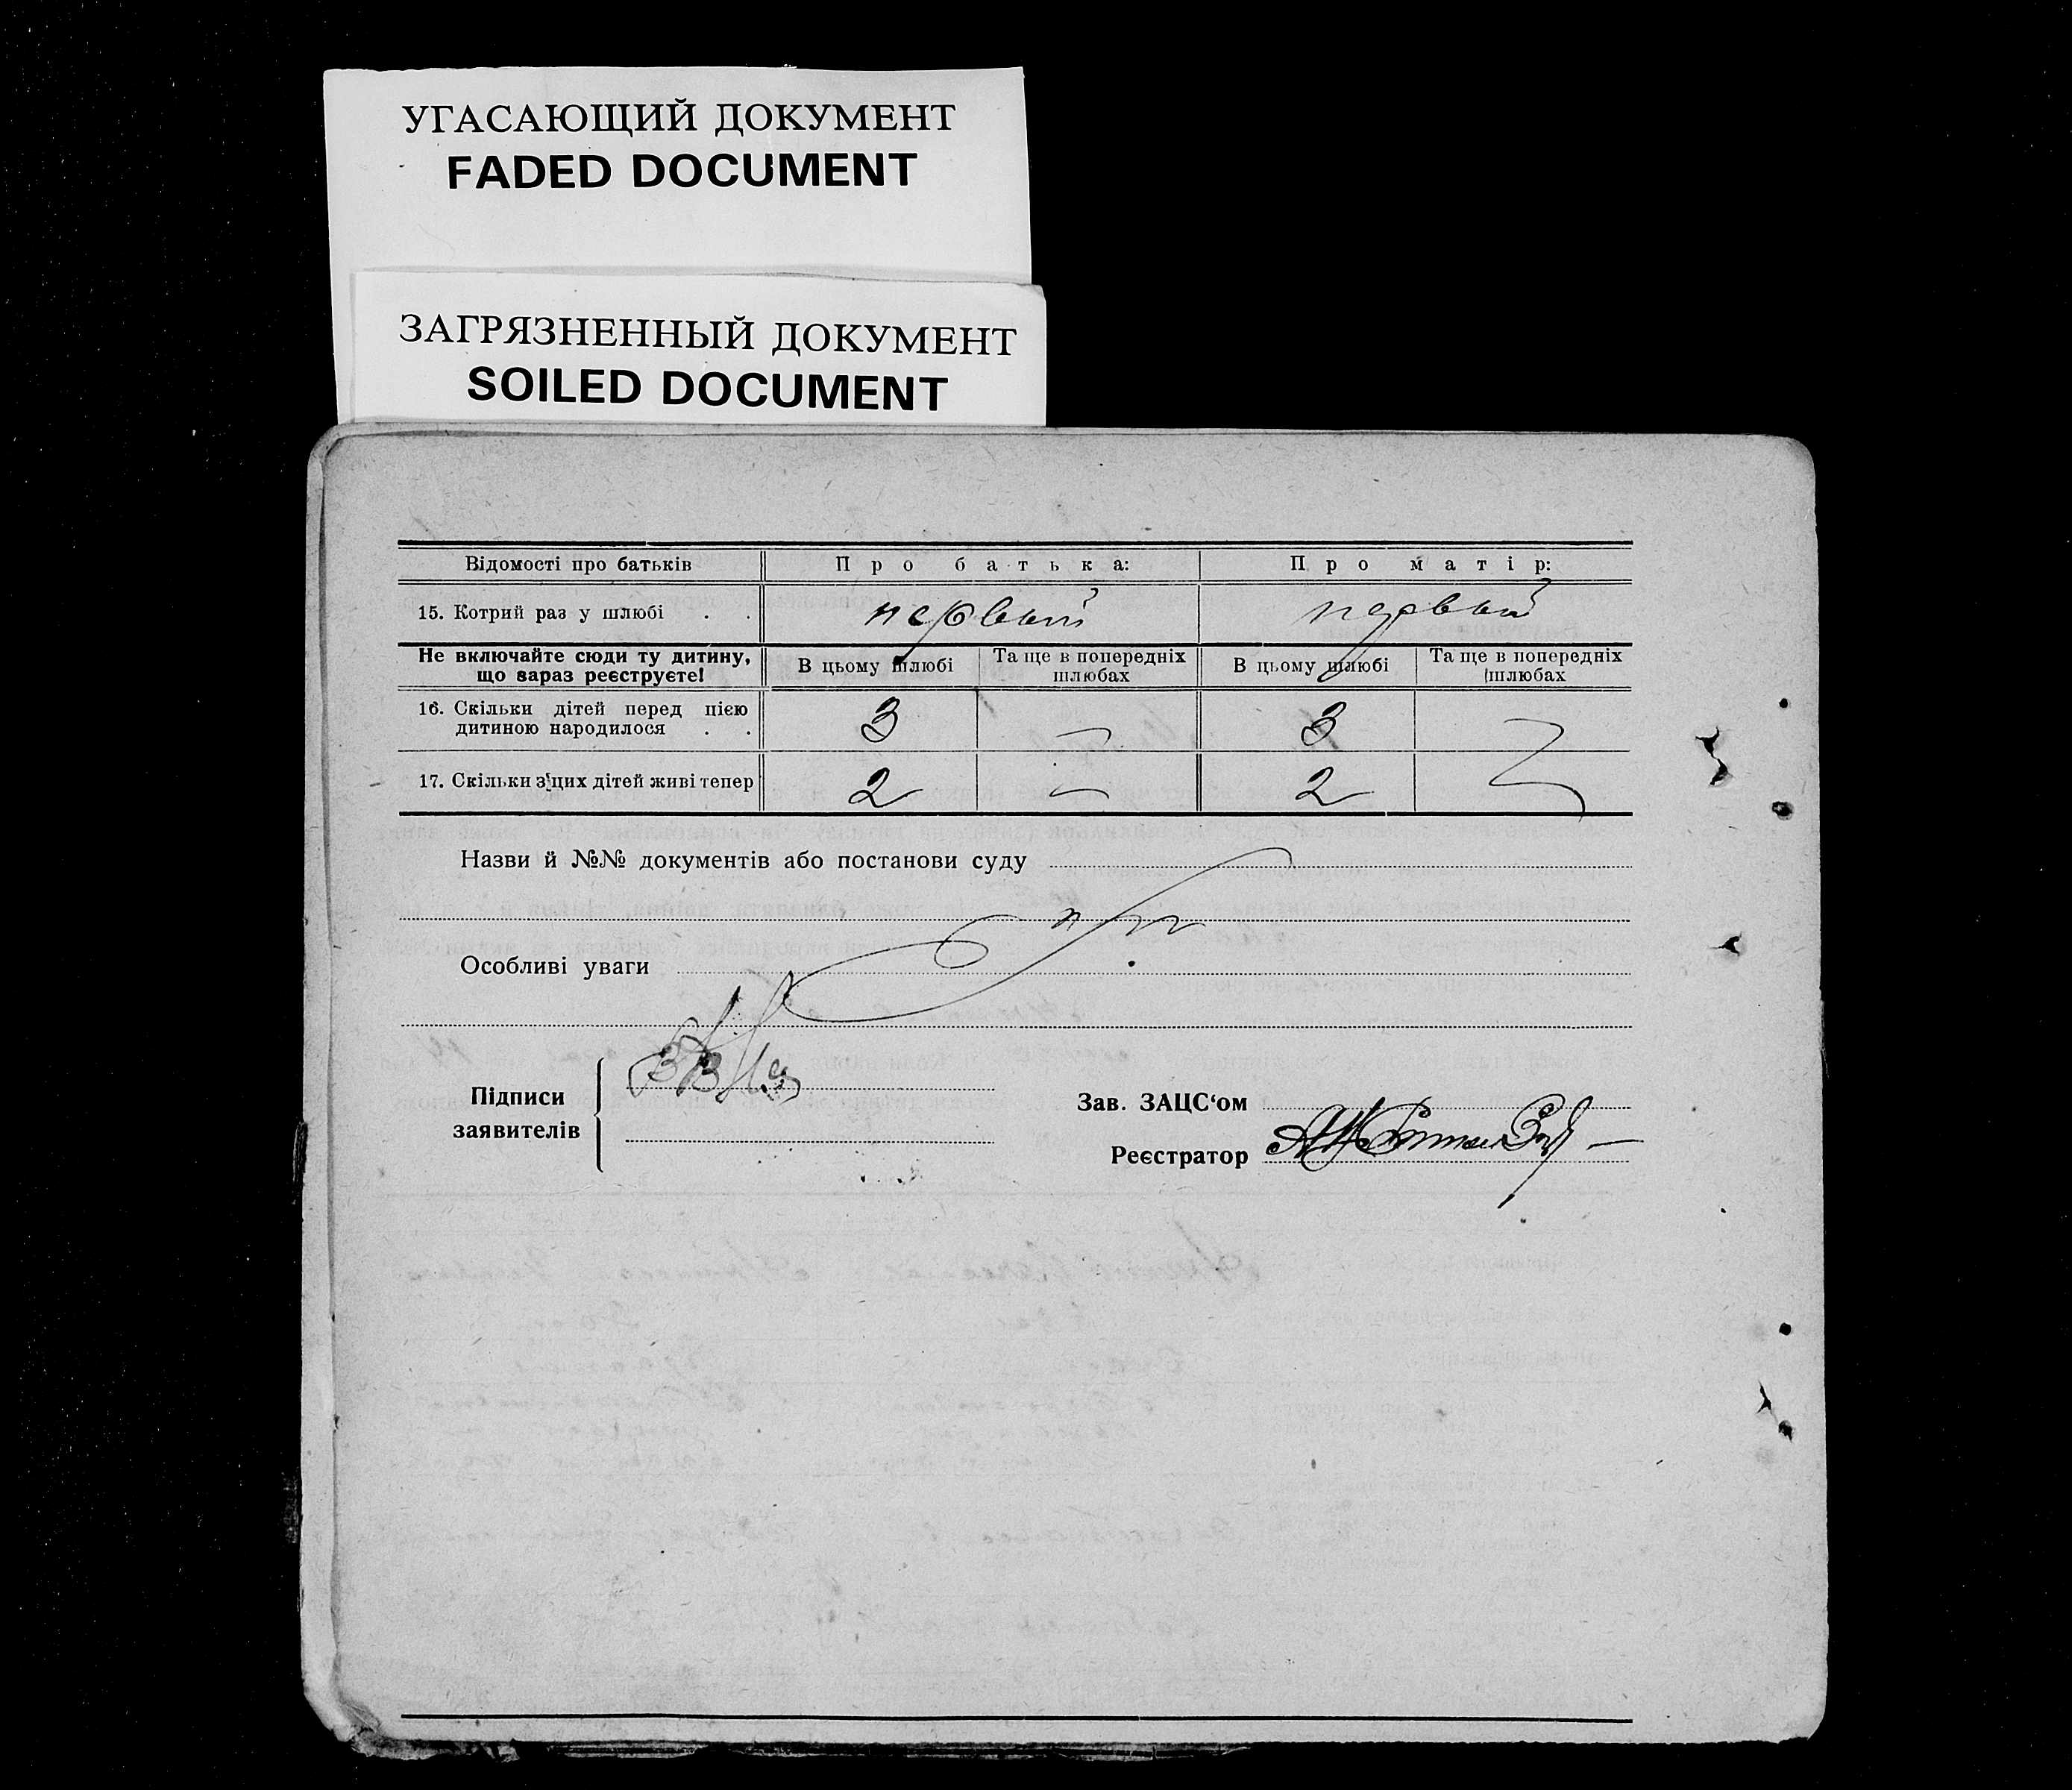 УГАСАЮЩИЙ ДОКУМЕНТ
FADED DOCUMENT
ЗАГРЯЗНЕННЫЙ ДОКУМЕНТ
SOILED DOCUMENT
Відомості про батьків Про батька: Про матір:
15. Котрий раз у шлюбі . . первый первый
Не включайте сюди ту дитину, що зараз реєструєте! В цьому шлюбі Та ще в попередніх шлюбах В цьому шлюбі Та ще в попередніх шлюбах
16. Скільки дітей перед цією дитиною народилося . . 3 — 3
17. Скільки з цих дітей живі тепер 2 — 2
Назви й №№ документів або постанови суду
Особливі уваги
Підписи заявителів
Зав. ЗАЦС‘ом
Реєстратор